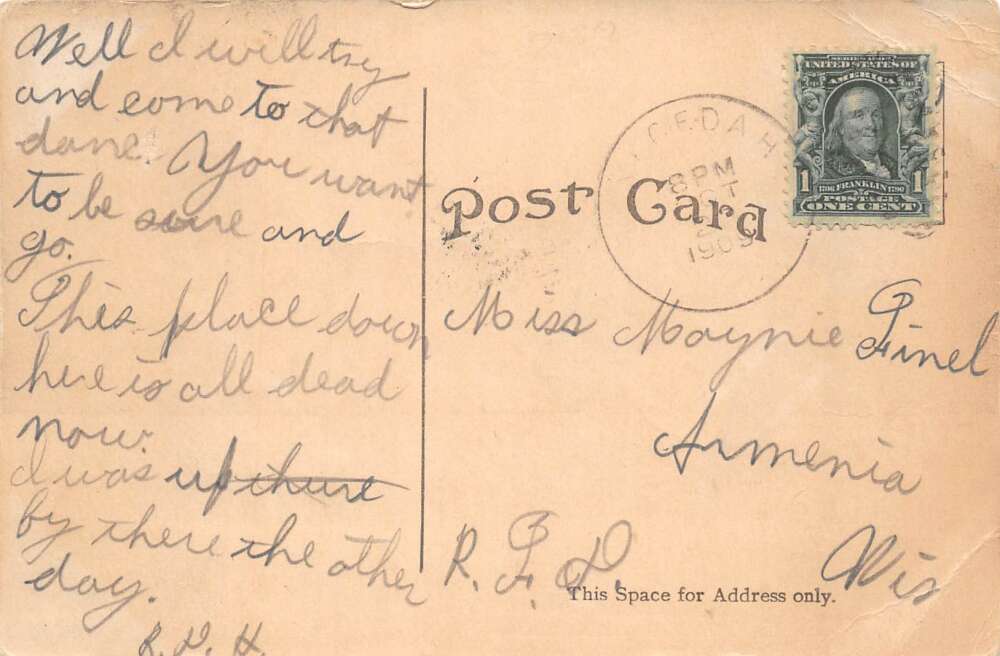 Well I will try
and come to that
dance. You want
to be sure and
go.
This place down
here is all dead
now.
I was up there
by there the other
day.
R. D. H.
Post Card
NECEDAH
8 PM
OCT
1909
SERIES 1902
UNITED STATES OF
AMERICA
1 1706 FRANKLIN 1790 1
POSTAGE
ONE CENT
Miss Maynie Finel
Armenia
R. F. D. Wis
This Space for Address only.